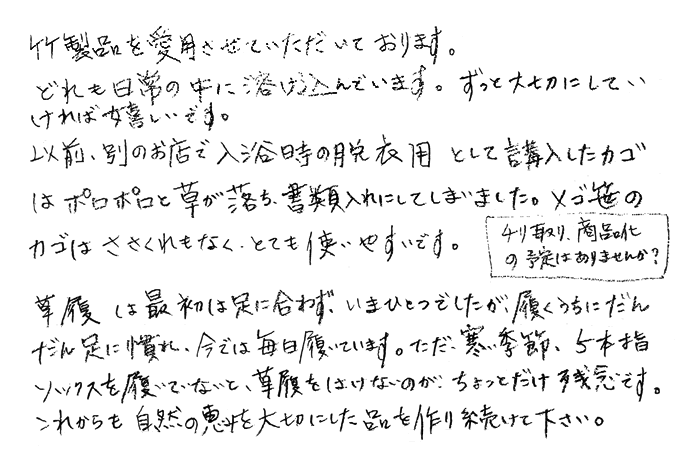 竹製品を愛用させていただいております。
どれも日常の中に溶け込んでいます。ずっと大切にしてい
ければ嬉しいです。
以前、別のお店で入浴時の脱衣用として購入したカゴ
はポロポロと草が落ち、書類入れにしてしまいました。メゴ笹の
カゴはささくれもなく、とても使いやすいです。
チリ取り、商品化
の予定はありませんか?
草履は最初は足に合わず、いまひとつでしたが、履くうちにだん
だん足に慣れ、今では毎日履いています。ただ、寒い季節、5本指
ソックスを履いていないと、草履をはけないのが、ちょっとだけ残念です。
これからも自然の恵みを大切にした品を作り続けて下さい。